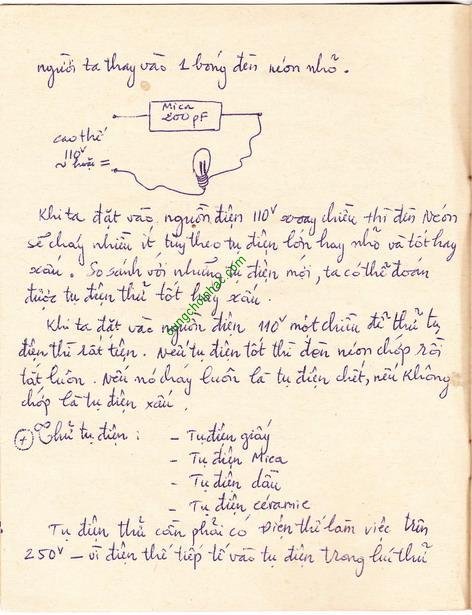 người ta thay vào 1 bóng đèn néon nhỏ.
Mica
200pF
cao thế
110v
~ hoặc =
Khi ta đặt vào nguồn điện 110v xoay chiều thì đèn Néon
sẽ cháy nhiều ít tùy theo tụ điện lớn hay nhỏ và tốt hay
xấu. So sánh với những tụ điện mới, ta có thể đoán
được tụ điện thử tốt hay xấu.
Khi ta đặt vào nguồn điện 110v một chiều để thử tụ
điện thì rất tiện. Nếu tụ điện tốt thì đèn néon chớp rồi
tắt luôn. Nếu nó cháy luôn là tụ điện chết, nếu không
chớp là tụ điện xấu.
+ Thử tụ điện : - Tụ điện giấy
- Tụ điện Mica
- Tụ điện dầu
- Tụ điện céramic
Tụ điện thử cần phải có Điện thế làm việc trên
250v - vì điện thế tiếp tế vào tụ điện trong lúc thử